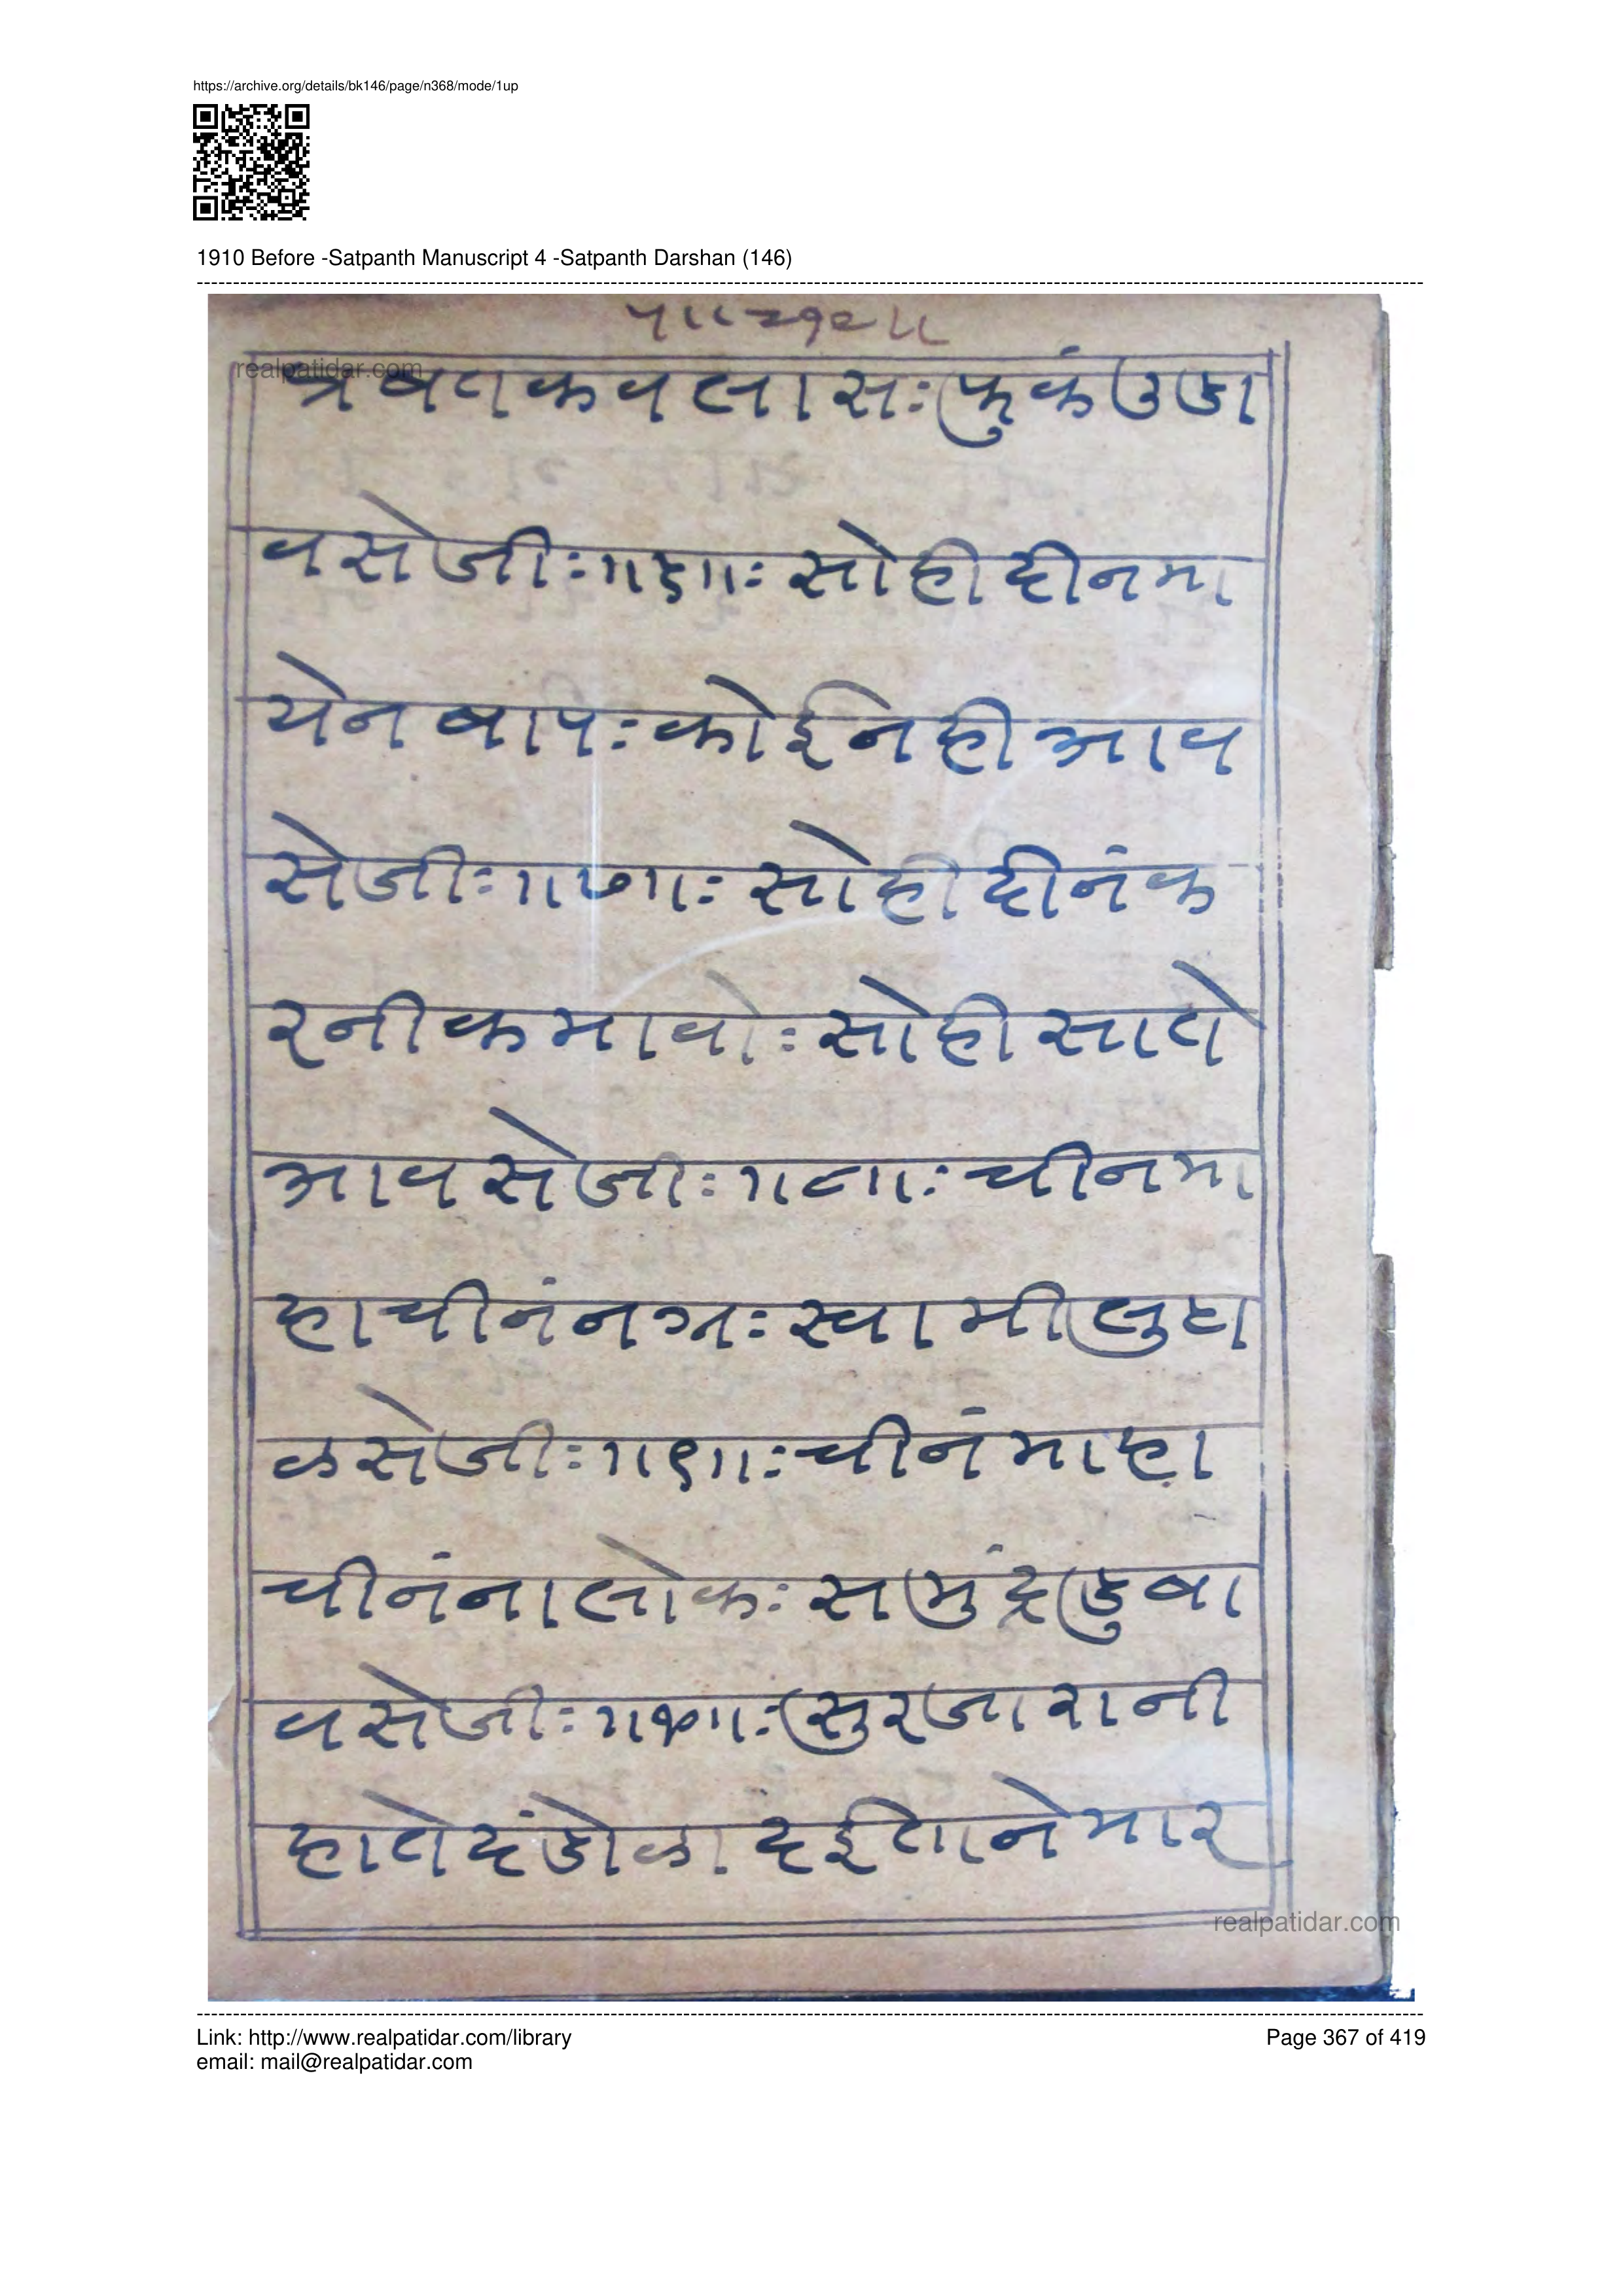 https://archive.org/details/bk146/page/n368/mode/1up
1910 Before -Satpanth Manuscript 4 -Satpanth Darshan (146)
realpatidar.com
त्रबतकवलासः फुकं उडा
वसेजीः ॥६॥ः सोही दीन मा
येन बापः कोई नही आव
सेजीः ॥७॥ः सोही दीनं क
रनी कमावोः सोही साते
आवसेजीः ॥८॥ः चीन मा
हा चीनं नग्रः स्वामी लुदा
ळसेजीः ॥९॥ः चीनं माहा
चीनंना लोकः समुंद्र डुबा
वसेजीः ॥१०॥ः सुरजा रानी
हाते दंडोळा दईताने मार
realpatidar.com
Link: http://www.realpatidar.com/library
Page 367 of 419
email: mail@realpatidar.com